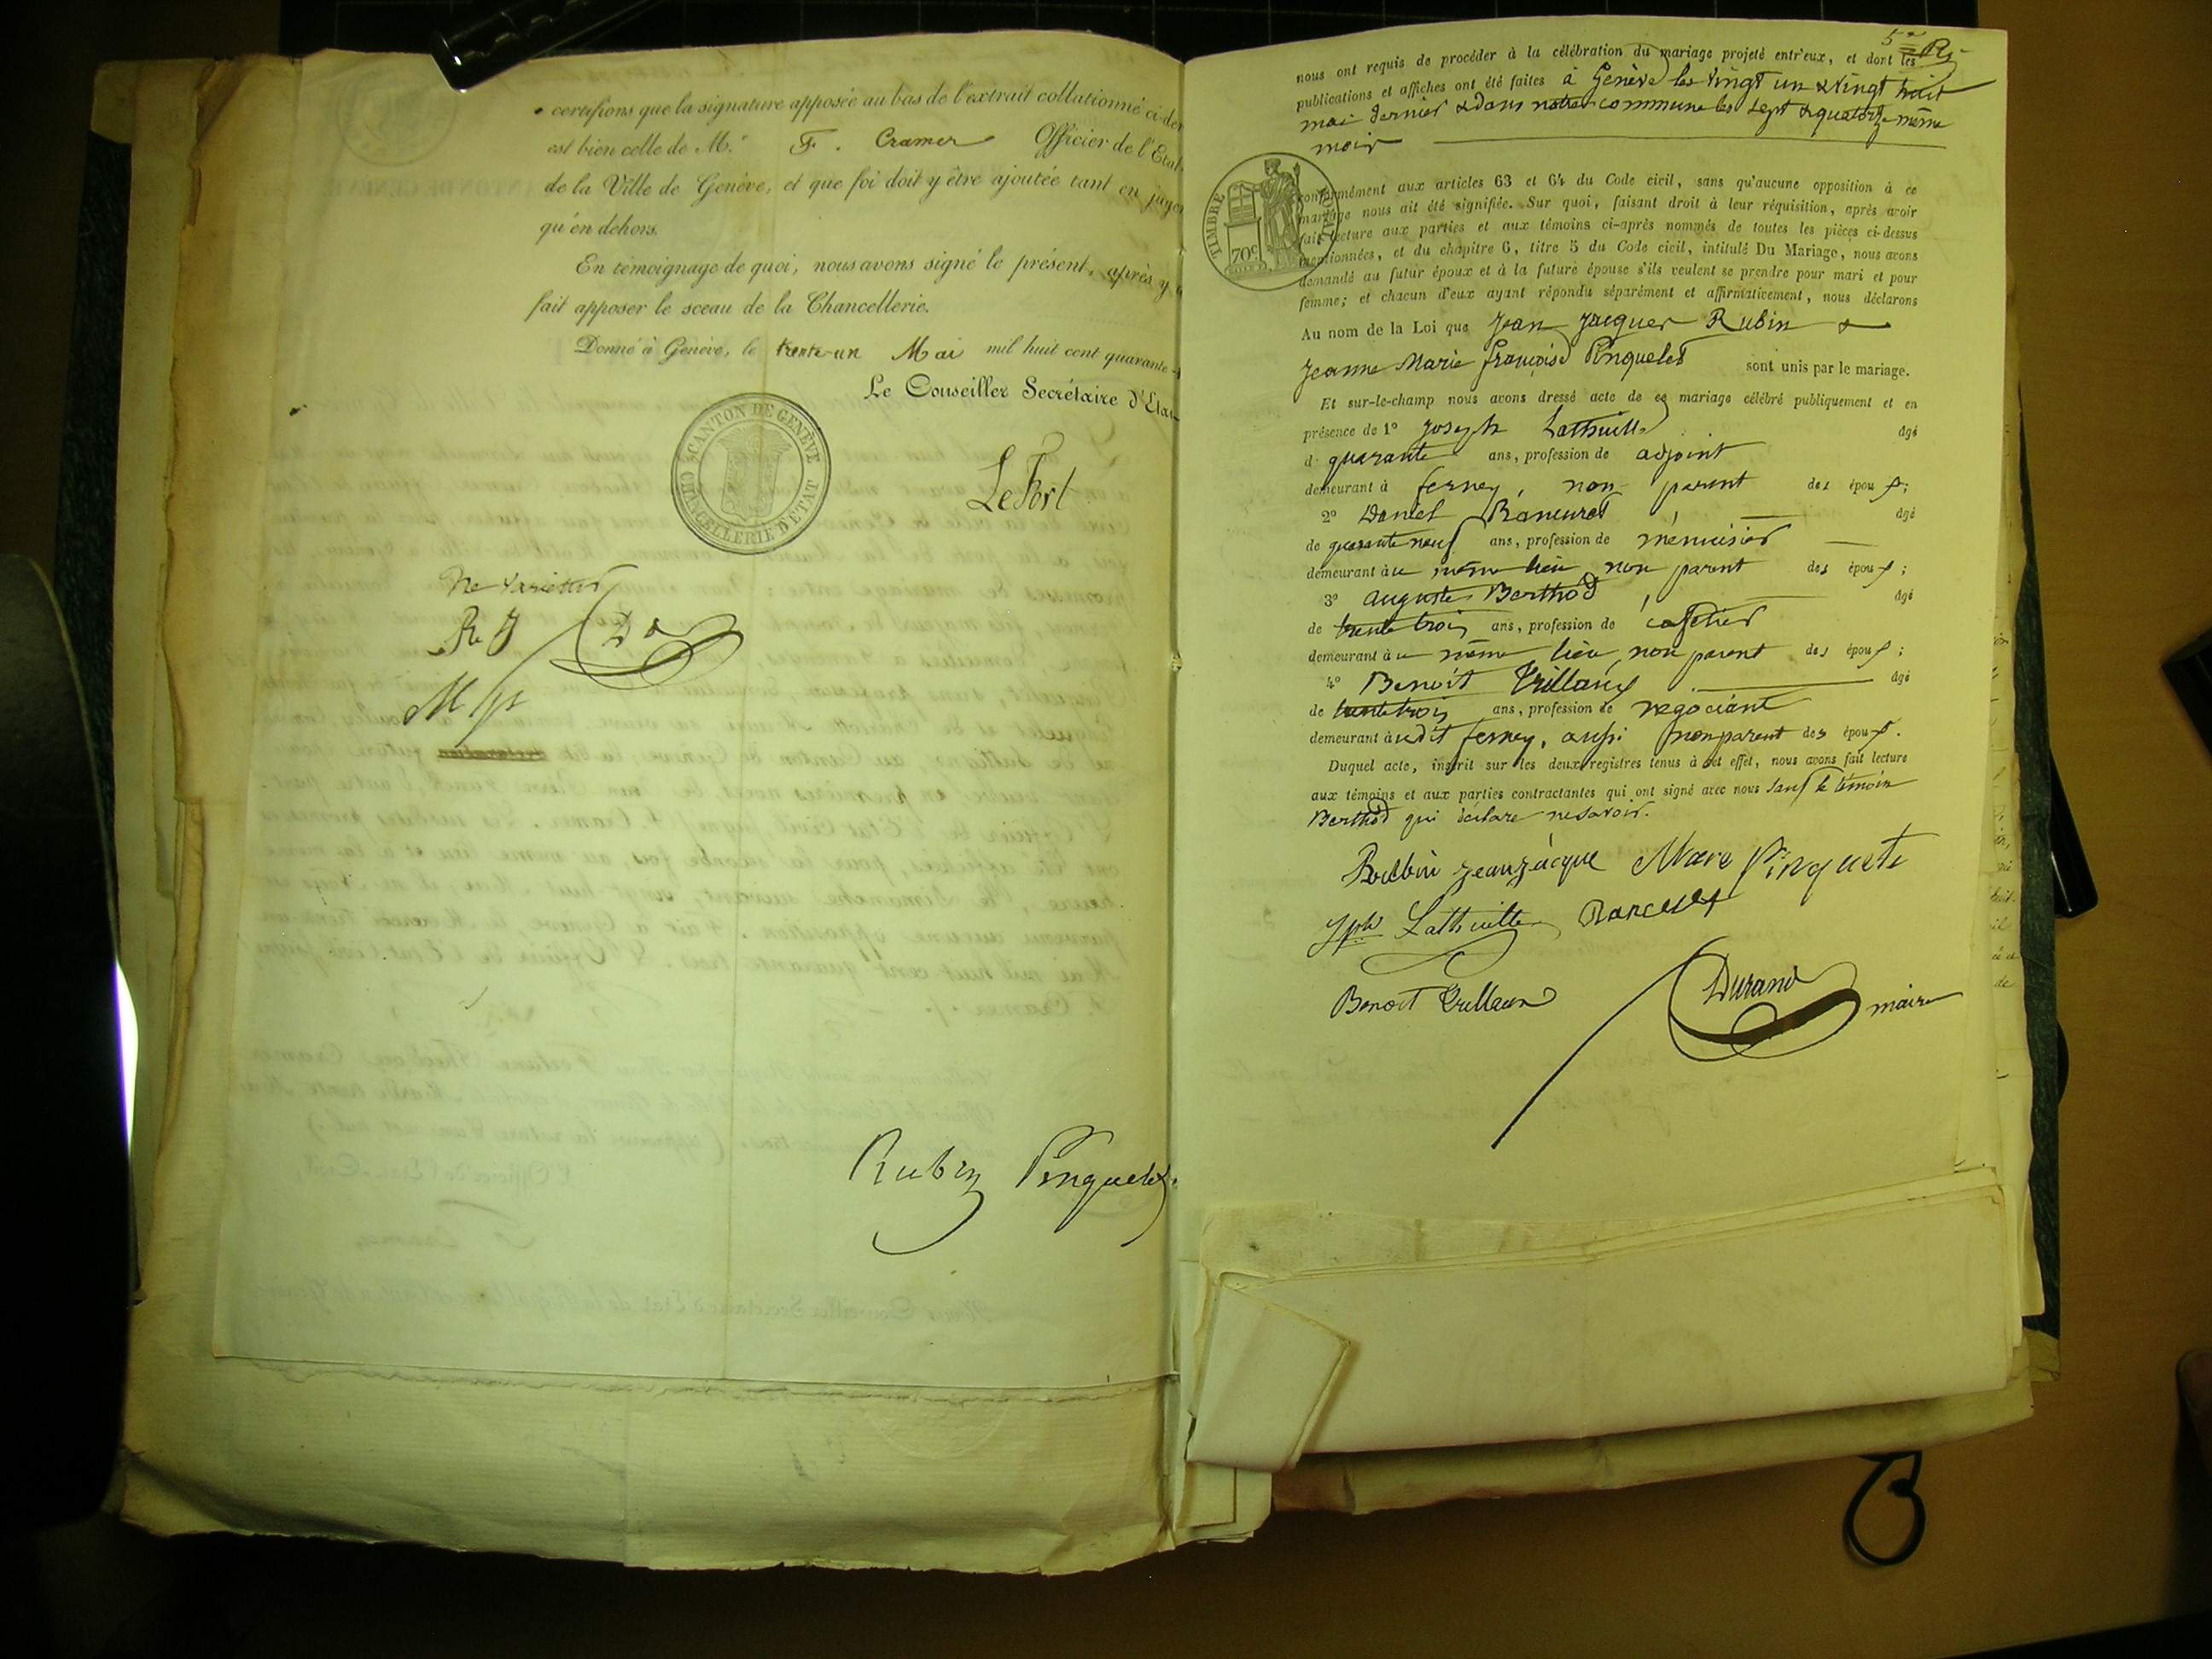 certifions que la signature apposée au bas de l'extrait collationné ci-der
est bien celle de M.r F. Cramer Officier de l'Etat
de la Ville de Genève, et que foi doit y être ajoutée tant en juge
qu'en dehors.
En témoignage de quoi, nous avons signé le présent, après y a
fait apposer le sceau de la Chancellerie.
Donné à Genève, le trente-un Mai mil huit cent quarante
Le Conseiller Secrétaire d'Etat
CANTON DE GENÈVE
CHANCELLERIE D'ÉTAT
LeFort
Ne Varietur
R J D
M p
Rubin Pinquelet
5e R
nous ont requis de procéder à la célébration du mariage projeté entr'eux, et dont les
publications et affiches ont été faites à Genève les vingt un & vingt huit
mai dernier & dans notre commune les sept & quatorze même
mois
TIMBRE ROYAL
70c
conformément aux articles 63 et 64 du Code civil, sans qu'aucune opposition à ce
mariage nous ait été signifiée. Sur quoi, faisant droit à leur réquisition, après avoir
fait lecture aux parties et aux témoins ci-après nommés de toutes les pièces ci-dessus
mentionnées, et du chapitre 6, titre 5 du Code civil, intitulé Du Mariage, nous avons
demandé au futur époux et à la future épouse s'ils veulent se prendre pour mari et pour
femme; et chacun d'eux ayant répondu séparément et affirmativement, nous déclarons
Au nom de la Loi que Jean Jacques Rubin &
Jeanne Marie françoise Pinquelet sont unis par le mariage.
Et sur-le-champ nous avons dressé acte de ce mariage célébré publiquement et en
présence de 1° Joseph Lathuille âgé
d quarante ans, profession de adjoint
demeurant à ferney, non parent des époux;
2° Daniel Ranceret, âgé
de quarante neuf ans, profession de menuisier
demeurant à u même lieu, non parent des époux;
3° auguste Berthod, âgé
de trente trois ans, profession de cafetier
demeurant à u même lieu, non parent des époux;
4° Benoit Trillaux âgé
de trente trois ans, profession de négociant
demeurant à udit ferney, aussi non parent des époux.
Duquel acte, inscrit sur les deux registres tenus à cet effet, nous avons fait lecture
aux témoins et aux parties contractantes qui ont signé avec nous sauf le témoin
Berthod qui déclare ne savoir.
Rubin jean jacque Marie Pinquete
Jph Lathuille Ranceret
Benoit Trillaux
Durand maire